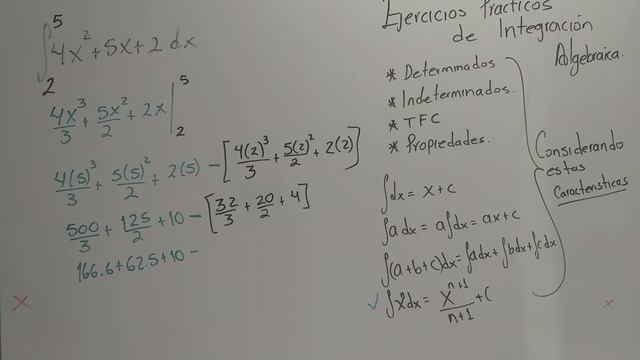 ∫₂⁵ 4x² + 5x + 2 dx
4x³/3 + 5x²/2 + 2x |₂⁵
4(5)³/3 + 5(5)²/2 + 2(5) - [4(2)³/3 + 5(2)²/2 + 2(2)]
500/3 + 125/2 + 10 - [32/3 + 20/2 + 4]
166.6 + 62.5 + 10 -
x
Ejercicios Practicos
de Integración
Algebraica.
* Determinados
* Indeterminados.
* TFC
* Propiedades.
Considerando
estas
Caracteristicas
∫dx = x + c
∫a dx = a∫dx = ax + c
∫(a+b+c)dx = ∫adx + ∫bdx + ∫cdx
✓ ∫xⁿdx = xⁿ⁺¹/n+1 + c
x